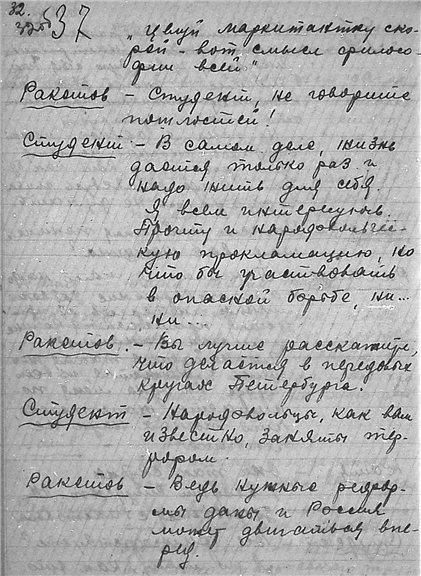 32.
37
„Целуй маркитантку ско-
рей – вот смысл филосо-
фии всей"
Ракетов – Студент, не говорите
пошлостей!
Студент – В самом деле, жизнь
дается только раз и
надо жить для себя.
Я всем интересуюсь.
Прочту и народовольчес-
кую прокламацию, но
что бы участвовать
в опасной борьбе, ни...
ни...
Ракетов. – Вы лучше расскажите,
что делается в передовых
кругах Петербурга.
Студент – Народовольцы, как вам
известно, заняты тер-
рором.
Ракетов – Ведь нужные рефор-
мы даны и Россия
может двигаться впе-
ред.